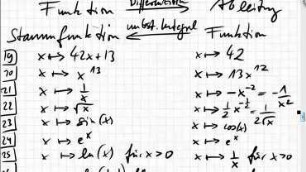 Funktion Differentiation Ableitung
Stammfunktion unbest. Integral Funktion
19 x ↦ 42x+13 x ↦ 42
20 x ↦ x^13 x ↦ 13x^12
21 x ↦ 1/x x ↦ -x^-2 = -1/x^2
22 x ↦ √x x ↦ 1/2 x^-1/2 = 1/(2√x)
23 x ↦ sin(x) x ↦ cos(x)
24 x ↦ e^x x ↦ e^x
25 x ↦ ln(x) für x>0 x ↦ 1/x für x>0